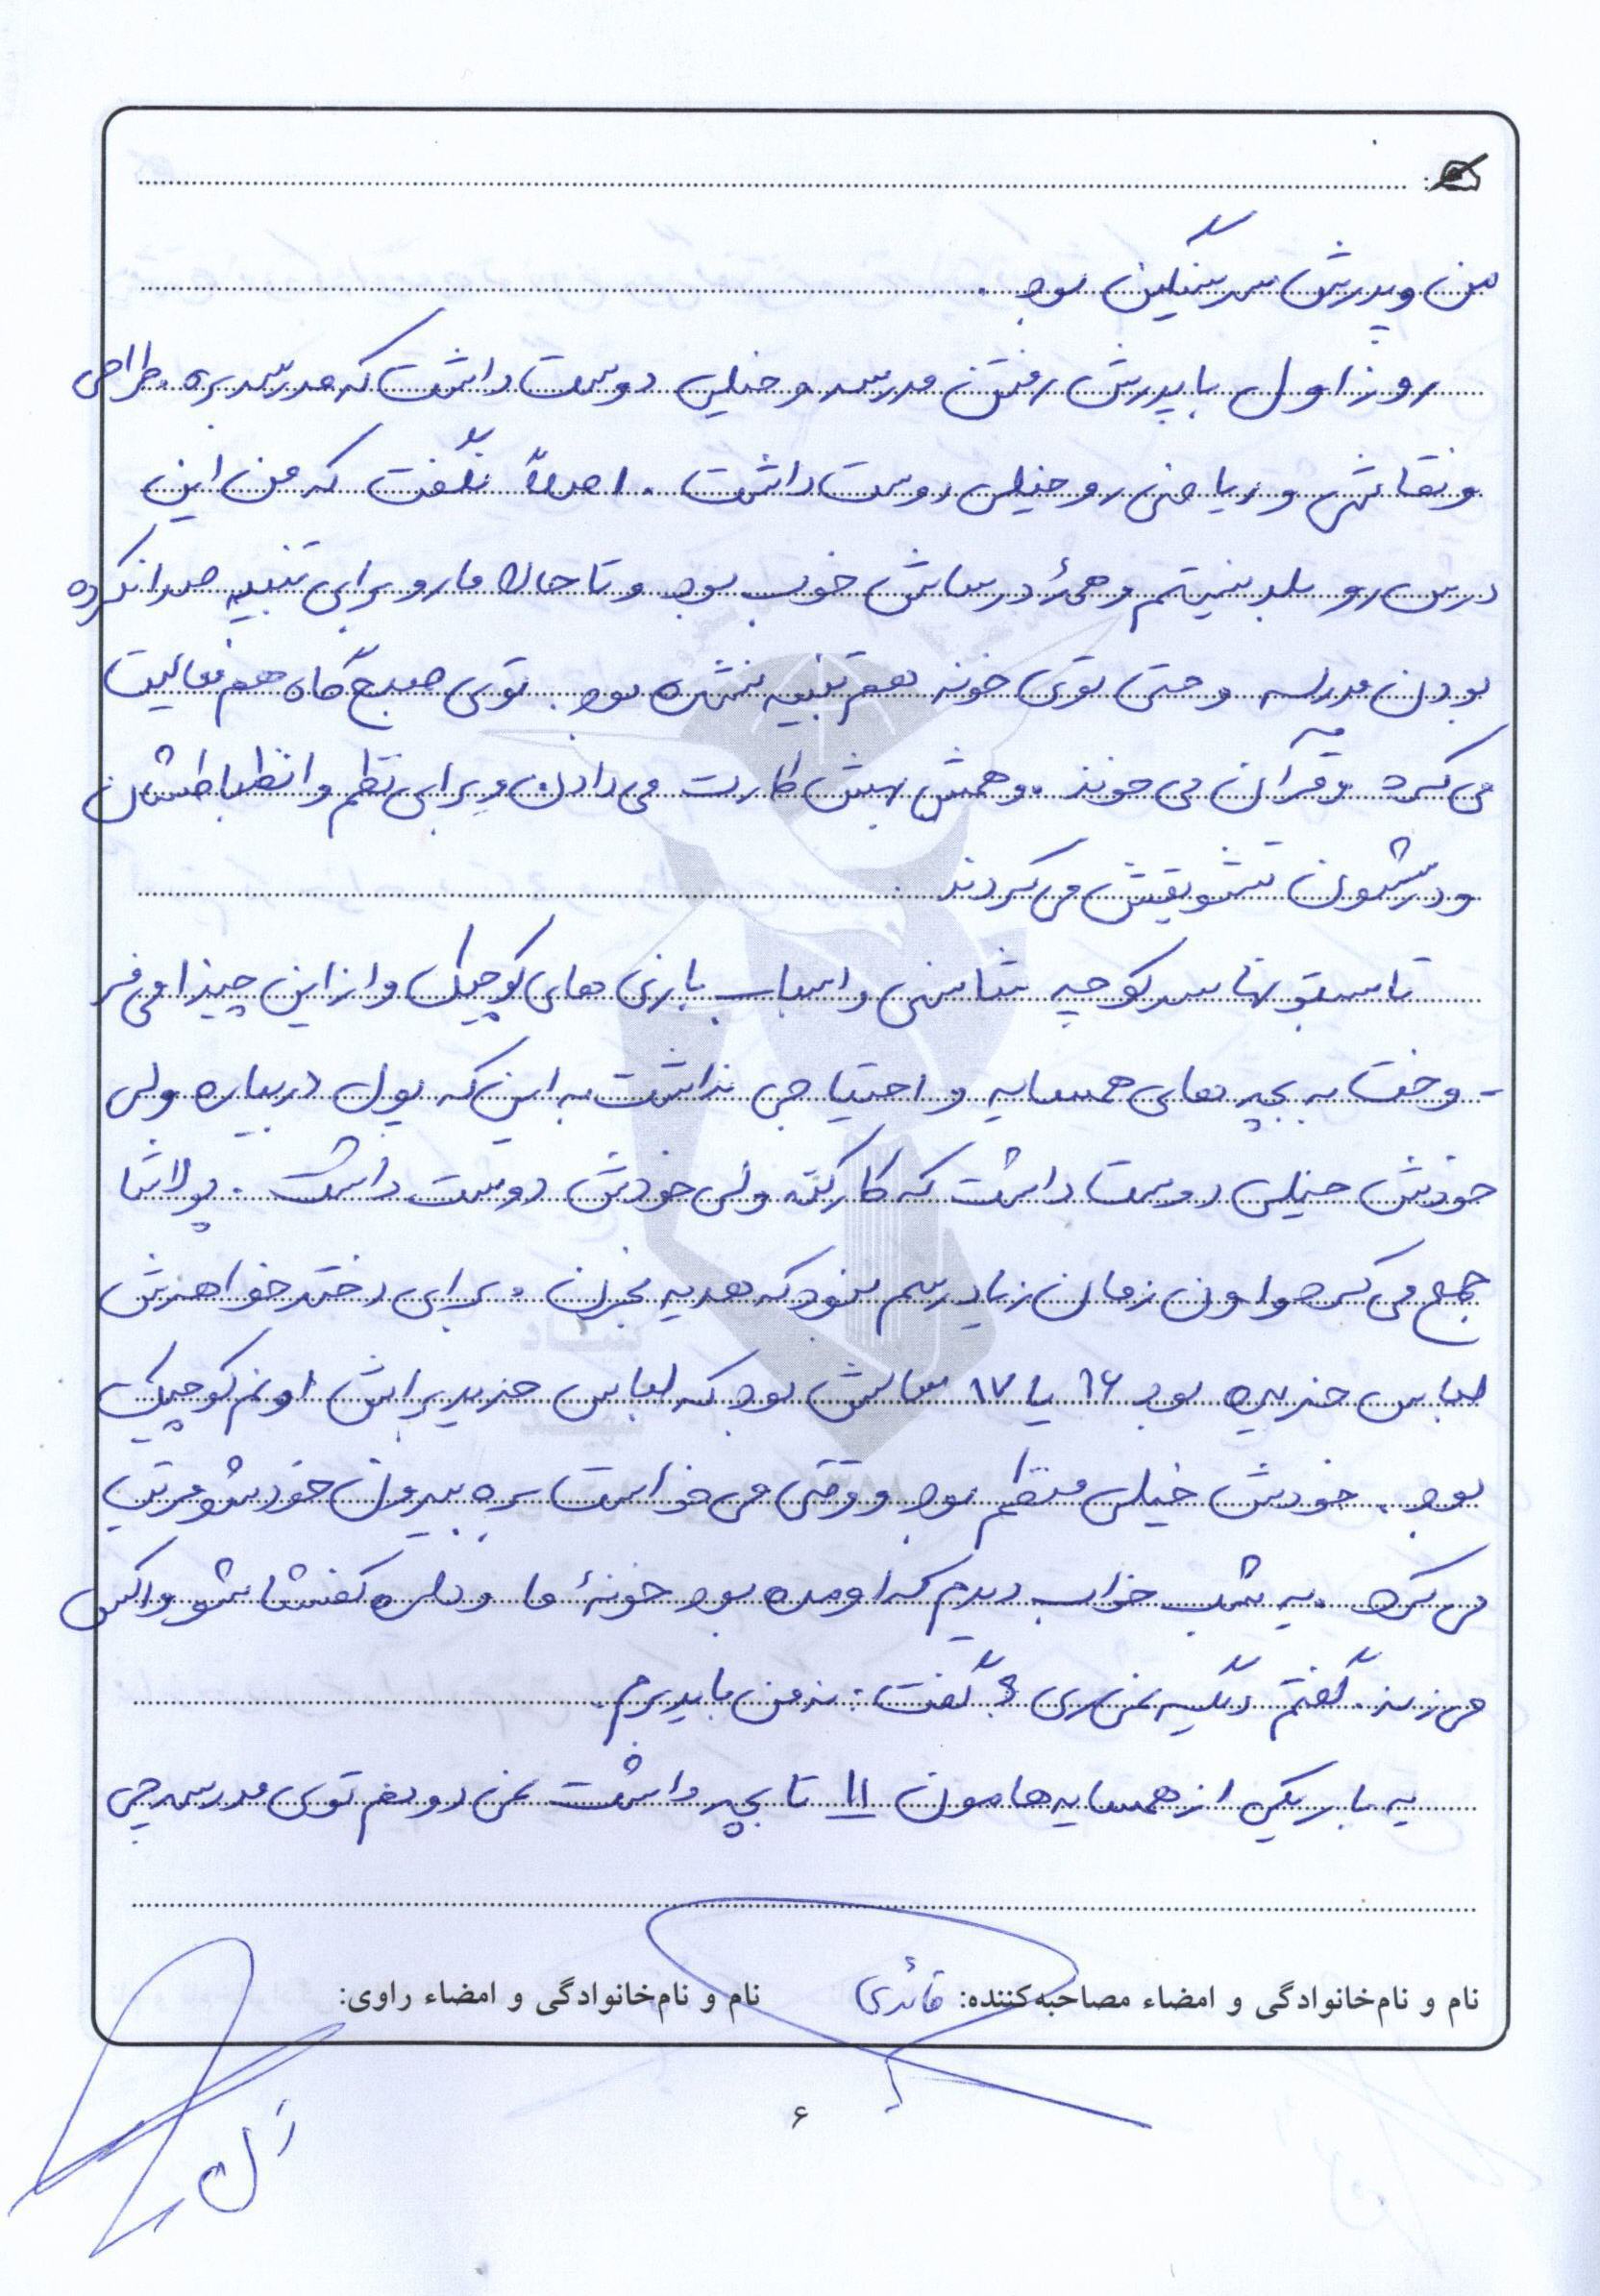 من و پدرش سر سنگین بود.
روز اول با پدرش رفتن مدرسه و خیلی دوست داشت که مدرسه بره. طراحی
و نقاشی و ریاضی رو خیلی دوست داشت. اصلاً نگفت که من این
درس رو بلد نیستم و همۀ درساش خوب بود و تا حالا ما رو برای تنبیه صدا نکرده
بودن مدرسه و حتی توی خونه هم تنبیه نشده بود. توی صبح گاه هم فعالیت
می کرد و قرآن می خوند. و همش بهش کارت می دادن و برای نظم و انظباطشان
و درسشون تشویقش می کردند.
تابستونها سر کوچه شانسی و اسباب بازی های کوچیک و از این چیزا می فر
- وخت به بچه های همسایه و احتیاجی نداشت به این که پول دربیاره ولی
خودش خیلی دوست داشت که کار کنه ولی خودش دوست داشت. پولاشا
جمع می کرد و اون زمان زیاد رسم نبود که هدیه بخرن. برای دختر خواهرش
لباس خریده بود ۱۶ یا ۱۷ سالش بود که لباس خرید براش اونم کوچیک
بود. خودش خیلی منظم بود و وقتی می خواست بره بیرون خودشو مرتب
می کرد. یه شب خواب دیدم که اومده بود خونۀ ما و داره کفشاشو واکس
می زنه. گفتم دیگه نمی ری؟ گفت: نه من باید برم.
یه بار یکی از همسایه هامون ۱۱ تا بچه داشت نمی دونم توی مدرسه چی
نام و نام‌خانوادگی و امضاء مصاحبه‌کننده: قائدی
نام و نام‌خانوادگی و امضاء راوی:
۶